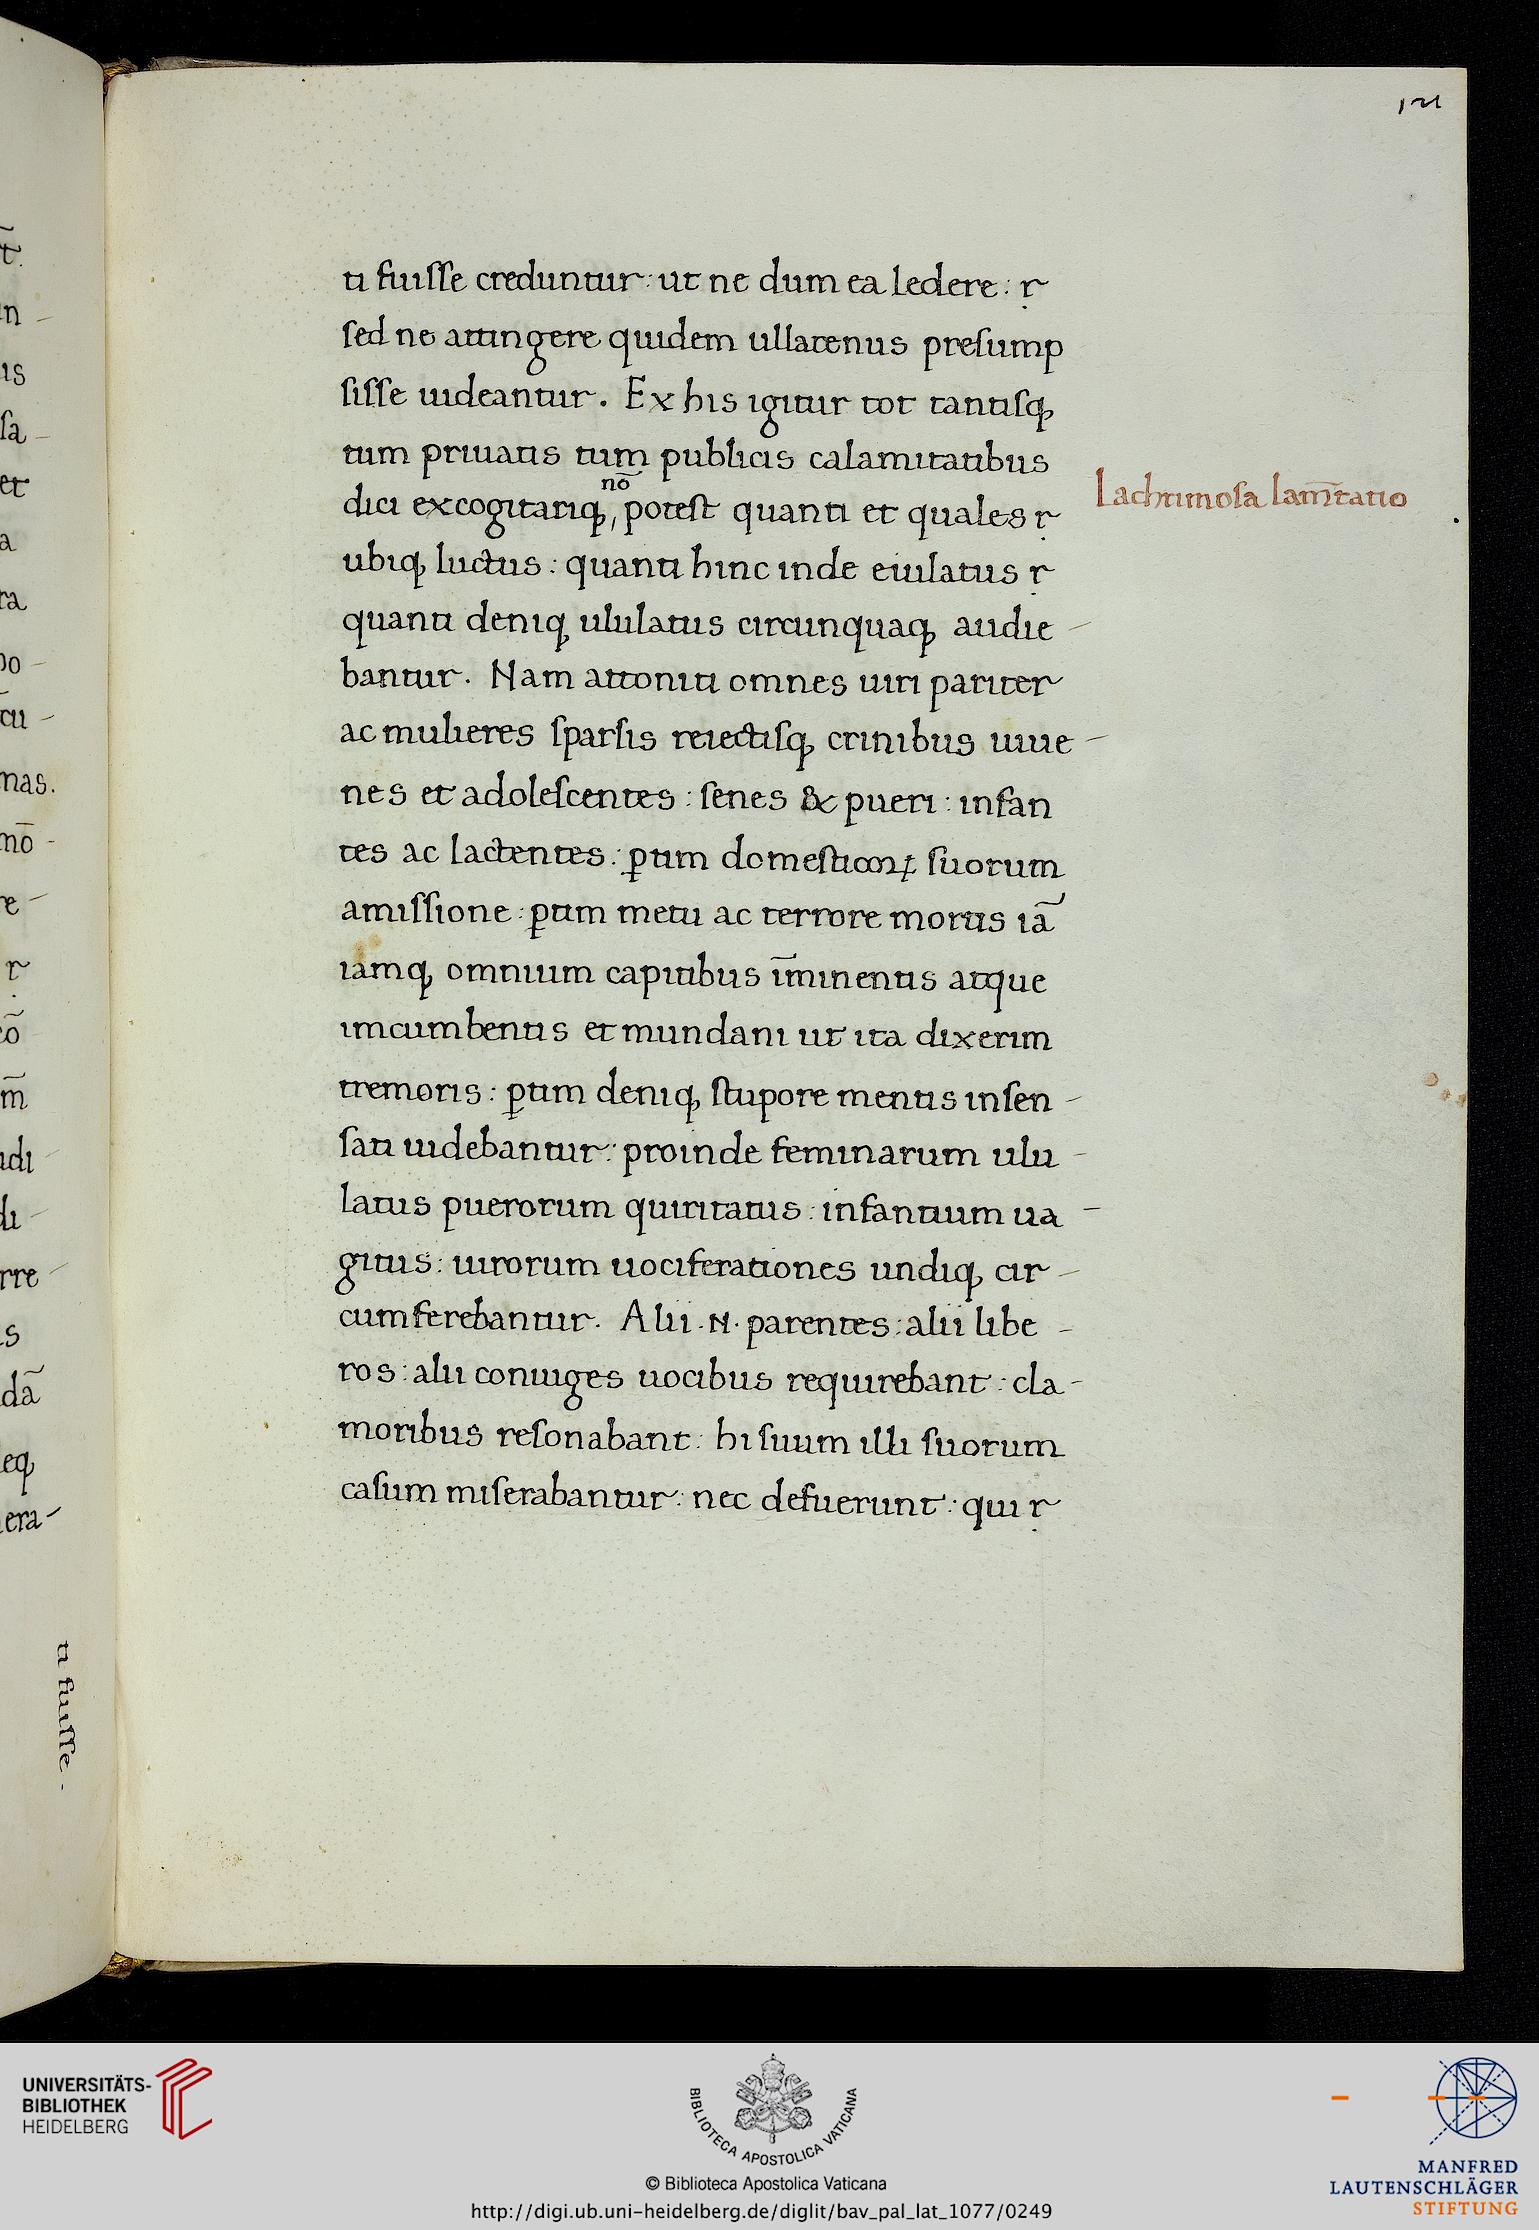 121
ti fuiſſe creduntur : ut ne dum ea ledere : ṛ
ſed ne attingere quidem ullatenus preſump
ſiſſe uideantur . Ex his igitur tot tantiſq,
tum priuatis tum publicis calamitatibus
nō
dici excogitariq, potest quanti et quales ṛ
Lachrimoſa lam̄tatio
ubiq, luctus : quanti hinc inde eiulatus ṛ
quanti deniq, ululatus circunquaq, audie -
bantur . Nam attoniti omnes uiri pariter
ac mulieres ſparſis reiectiſq, crinibus iuue -
nes et adoleſcentes : ſenes & pueri : infan
tes ac lactentes : ꝑtim domesticoꝝ ſuorum
amiſſione : ꝑtim metu ac terrore mortis iā
iamq, omnium capitibus īminentis atque
imcumbentis et mundani ut ita dixerim
tremoris : ꝑtim deniq, stupore mentis inſen -
ſati uidebantur : proinde feminarum ulu -
latus puerorum quiritatus : infantium ua -
gitus : uirorum uociferationes undiq, cir -
cumferebantur . Alii .N. parentes : alii libe -
ros : alii coniuges uocibus requirebant : cla -
moribus reſonabant : hi ſuum illi ſuorum
caſum miſerabantur : nec defuerunt : qui ṛ
ti fuiſſe .
UNIVERSITÄTS-
BIBLIOTHEK
HEIDELBERG
BIBLIOTECA APOSTOLICA VATICANA
© Biblioteca Apostolica Vaticana
http://digi.ub.uni-heidelberg.de/diglit/bav_pal_lat_1077/0249
MANFRED
LAUTENSCHLÄGER
STIFTUNG